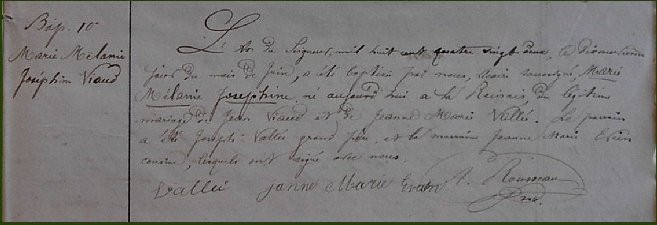 Bap. 10
Marie Mélanie
Joséphine Viaud
L'An du Seigneur, mil huit cent quatre vingt deux, le
jour du mois de Juin, a été baptisée par nous, vicaire soussigné, Marie
Mélanie Joséphine, né aujourd'hui a la du légitime
mariage de Jean Viaud et de Jeanne Marie Vallée. Le parrain
a été Joseph Vallée grand père, et la marraine Jeanne Marie
cousine, lesquels ont signé avec nous.
Vallée Janne Marie Evain